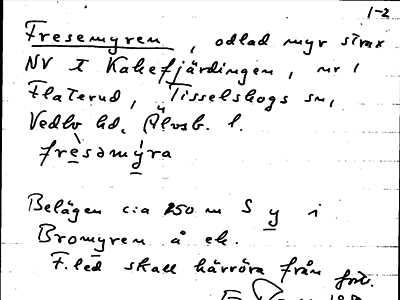 1-2
Fresemyren, odlad myr strax
NV t Kakefjärdingen, nr 1
Flaterud, Tisselskogs sn,
Vedbo hd, Älvsb. l.
frèsəmýra
Belägen c:a 250 m S y i
Bromyren å ek.
F.led skall härröra från